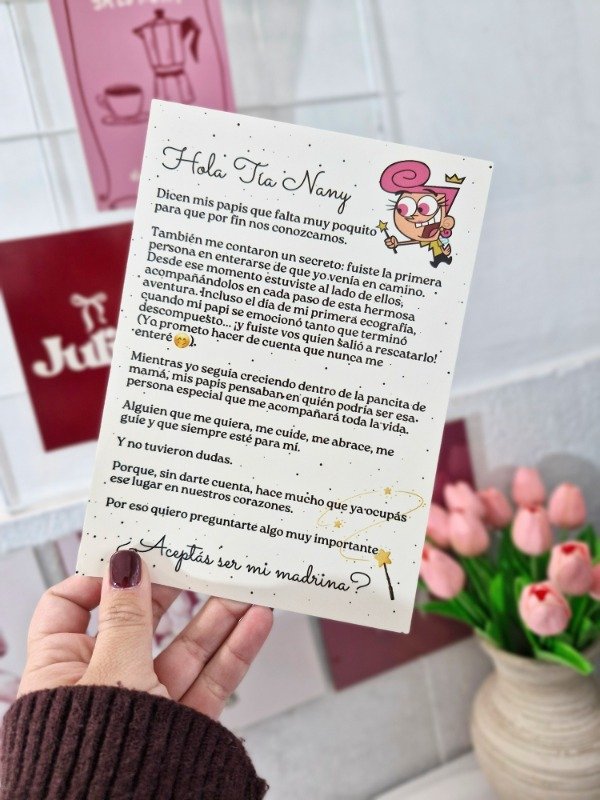 Hola Tía Nany
Dicen mis papis que falta muy poquito
para que por fin nos conozcamos.
También me contaron un secreto: fuiste la primera
persona en enterarse de que yo venía en camino.
Desde ese momento estuviste al lado de ellos,
acompañándolos en cada paso de esta hermosa
aventura. Incluso el día de mi primera ecografía,
cuando mi papi se emocionó tanto que terminó
descompuesto... ¡y fuiste vos quien salió a rescatarlo!
(Ya prometo hacer de cuenta que nunca me
enteré 🤭).
Mientras yo seguía creciendo dentro de la pancita de
mamá, mis papis pensaban en quién podría ser esa
persona especial que me acompañará toda la vida.
Alguien que me quiera, me cuide, me abrace, me
guíe y que siempre esté para mí.
Y no tuvieron dudas.
Porque, sin darte cuenta, hace mucho que ya ocupás
ese lugar en nuestros corazones.
Por eso quiero preguntarte algo muy importante
¿Aceptás ser mi madrina?